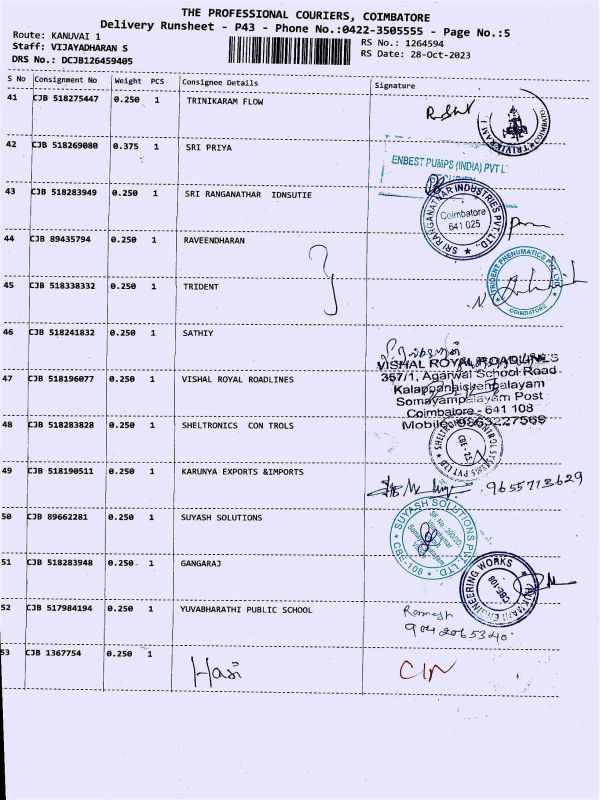 THE PROFESSIONAL COURIERS, COIMBATORE
Delivery Runsheet - P43 - Phone No.:0422-3505555 - Page No.:5
Route: KANUVAI 1
Staff: VIJAYADHARAN S
DRS No.: DCJB126459405
RS No.: 1264594
RS Date: 28-Oct-2023
S No Consignment No Weight PCS Consignee Details Signature
41 CJB 518275447 0.250 1 TRINIKARAM FLOW
COIMBATORE
42 CJB 518269080 0.375 1 SRI PRIYA
ENBEST PUMPS (INDIA) PVT L
43 CJB 518283949 0.250 1 SRI RANGANATHAR IONSUTIE
SRI RANGANATHAR INDUSTRIES PVT. LTD.
Coimbatore
641 025
44 CJB 89435794 0.250 1 RAVEENDHARAN
45 CJB 518338332 0.250 1 TRIDENT
TRIDENT PNEUMATICS PVT. LTD.
COIMBATORE
46 CJB 518241832 0.250 1 SATHIY
47 CJB 518196077 0.250 1 VISHAL ROYAL ROADLINES
VISHAL ROYAL ROADLINES
367/1, Agarwal School Road
Kalappanaickenpalayam
Somayampalayam Post
Coimbatore - 641 108
Mobile: 9863227569
48 CJB 518283828 0.250 1 SHELTRONICS CON TROLS
49 CJB 518190511 0.250 1 KARUNYA EXPORTS &IMPORTS
9655713629
50 CJB 89662281 0.250 1 SUYASH SOLUTIONS
SUYASH SOLUTIONS PVT. LTD.
CBE-108
51 CJB 518283948 0.250 1 GANGARAJ
ENGINEERING WORKS
CBE-108
52 CJB 517984194 0.250 1 YUVABHARATHI PUBLIC SCHOOL
Ramesh
9042065340
53 CJB 1367754 0.250 1 Hari